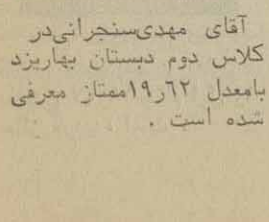 آقای مهدی‌سنجرانی‌در
کلاس دوم دبستان بهاریزد
بامعدل ۱۹٫۶۲ ممتاز معرفی
شده است .